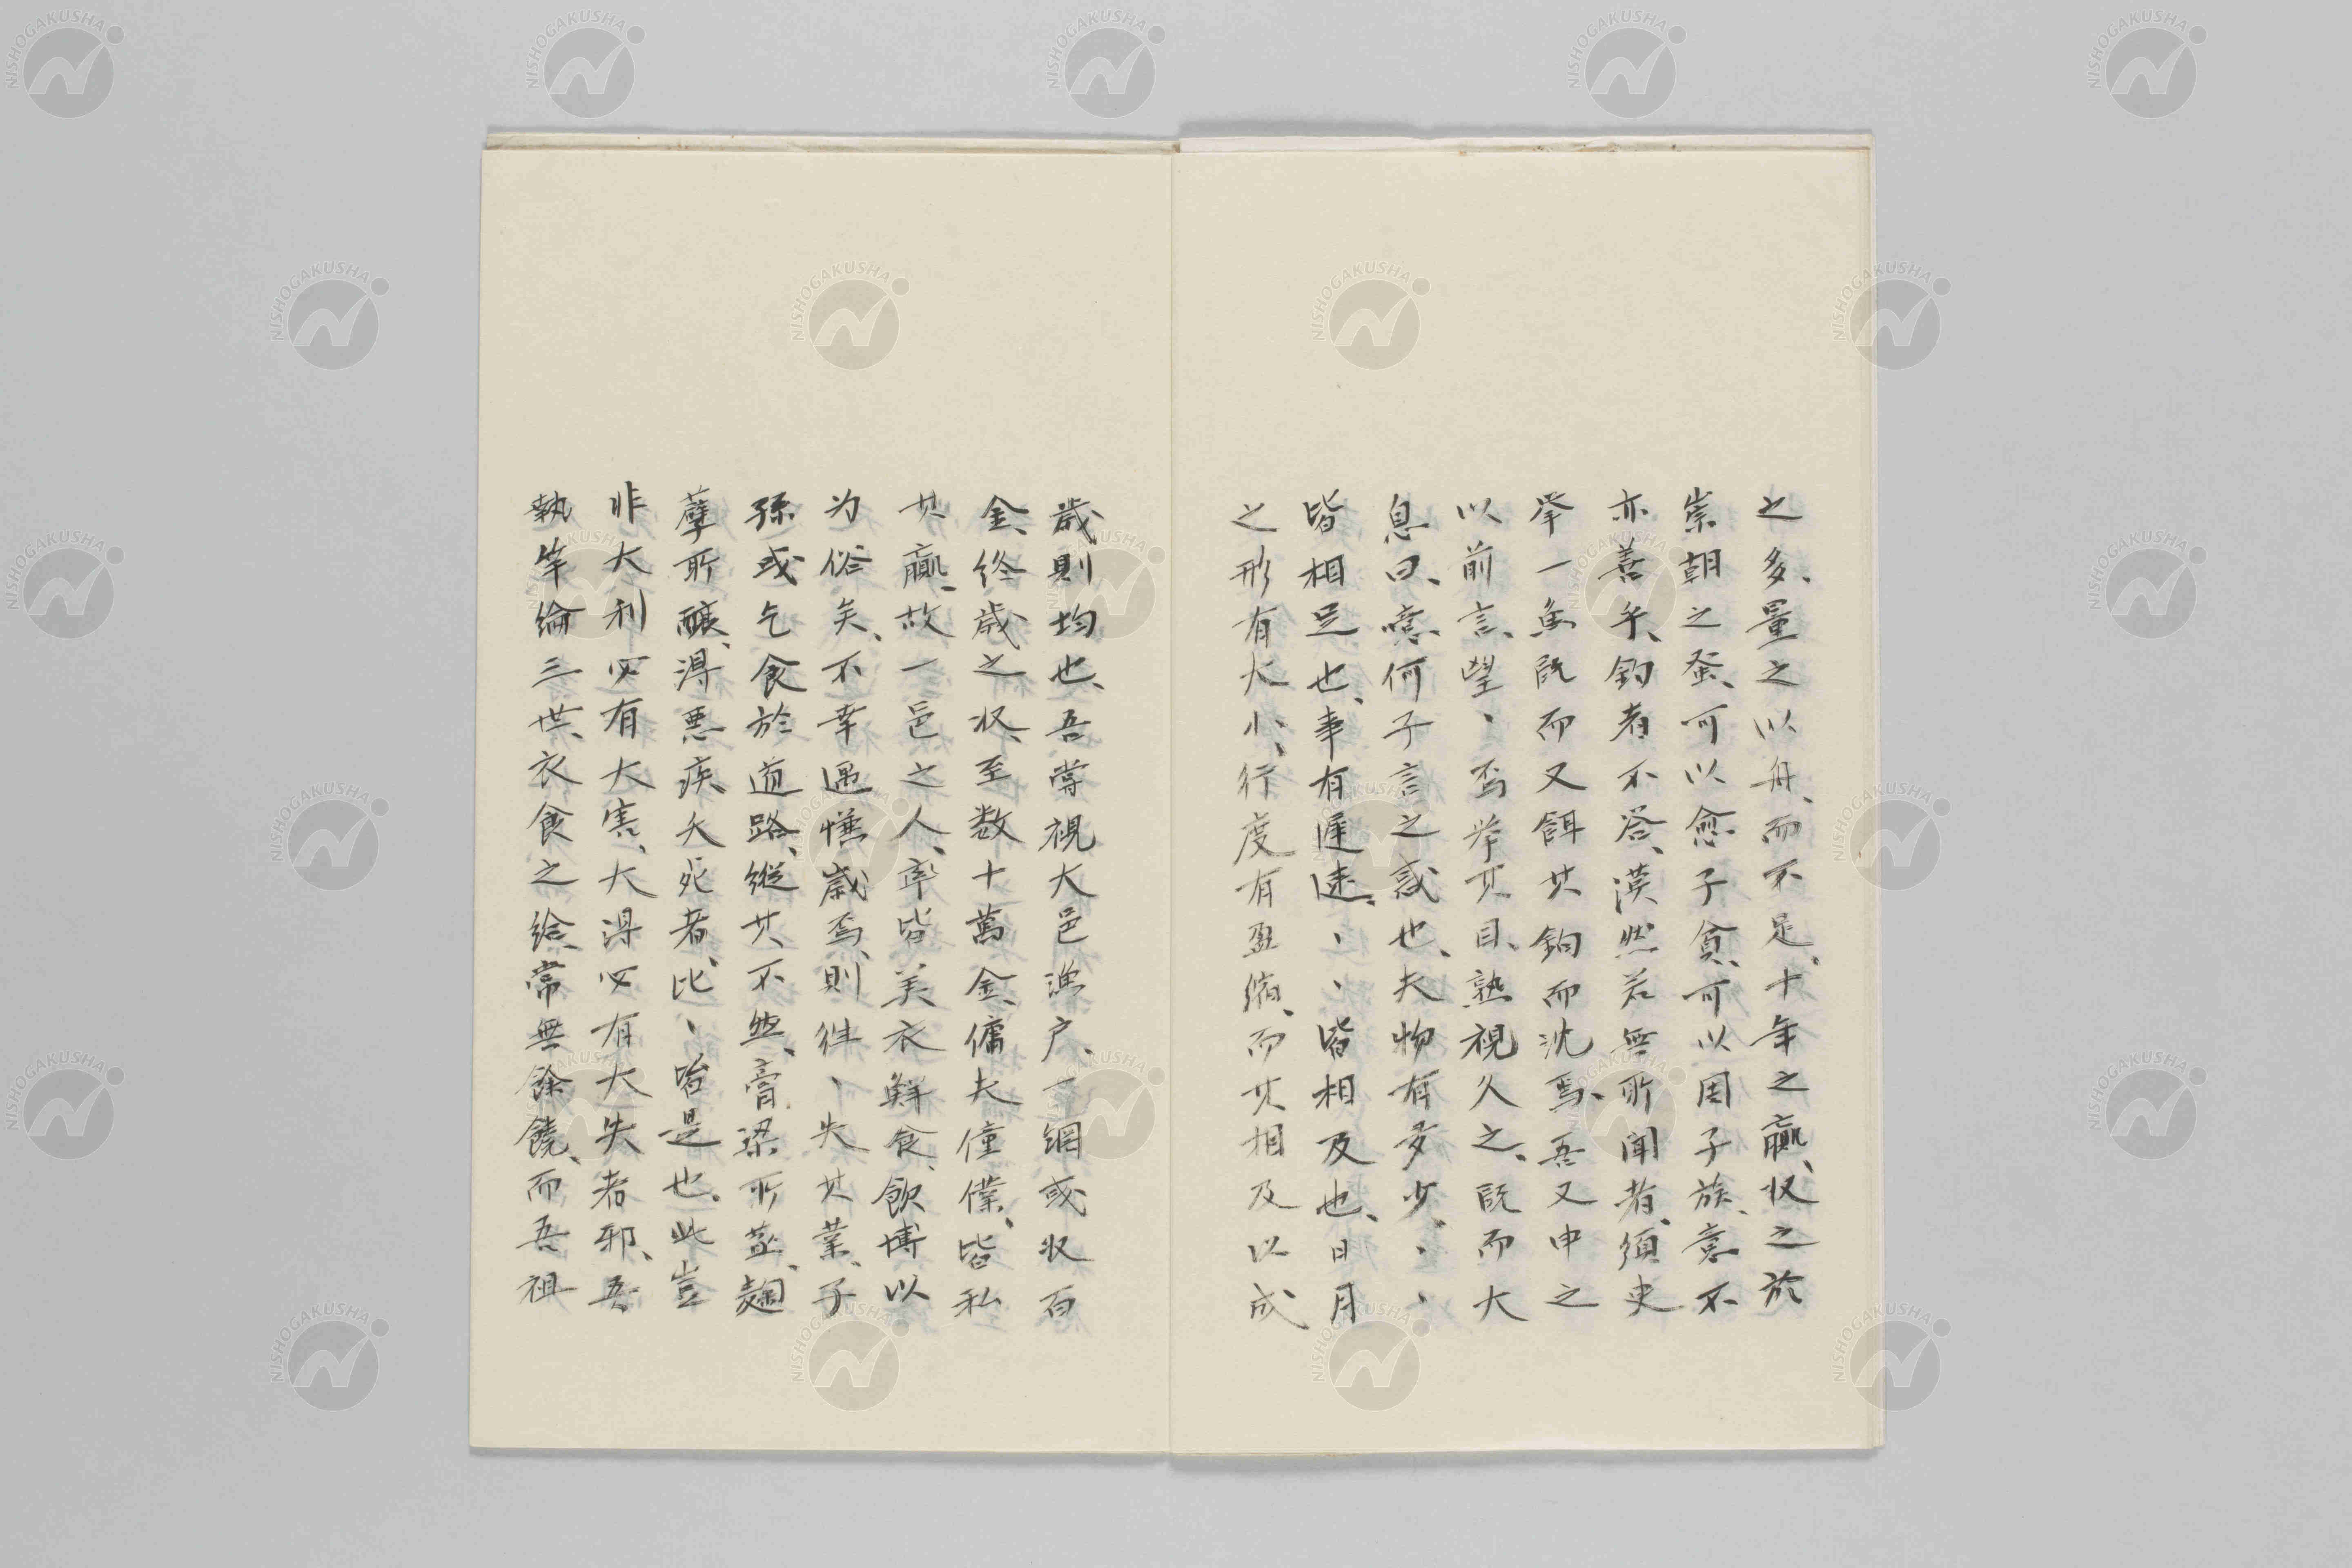 之多、量之以舟、而不足、十年之贏、収之於
崇朝之蚤、可以愈子貧、可以周子族、意不
亦善乎、釣者不答、漠然若無所聞者、須臾
挙一魚既而又餌其鉤而沈焉、吾又申之
以前言、望、焉挙其目、熟視久之、既而大
息曰、噫何子言之惑也、夫物有多少、、、
皆相足也、事有遅速、、、皆相及也、日月
之形有大小、行度有盈縮、而其相及以成
歳則均也、吾嘗視大邑漁戸、一網或収百
金、終歳之収、至数十萬金、傭夫僮僕、皆私
其贏、故一邑之人、率皆美衣鮮食、飲博以
为俗矣、不幸遇慊歳焉、則徃、失其業、子
孫或乞食於道路、縦其不然、膏梁所葅、麹
孽所醸、得悪疾夭死者、比、皆是也、此豈
非大利必有大害、大得必有大失者邪、吾
執竿綸三世、衣食之給、常無餘饒、而吾祖
NISHOGAKUSHA